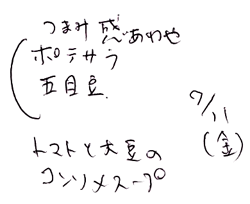 つまみ感あわや
ポテサラ
五目豆
7/11
(金)
トマトと大豆の
コンソメスープ